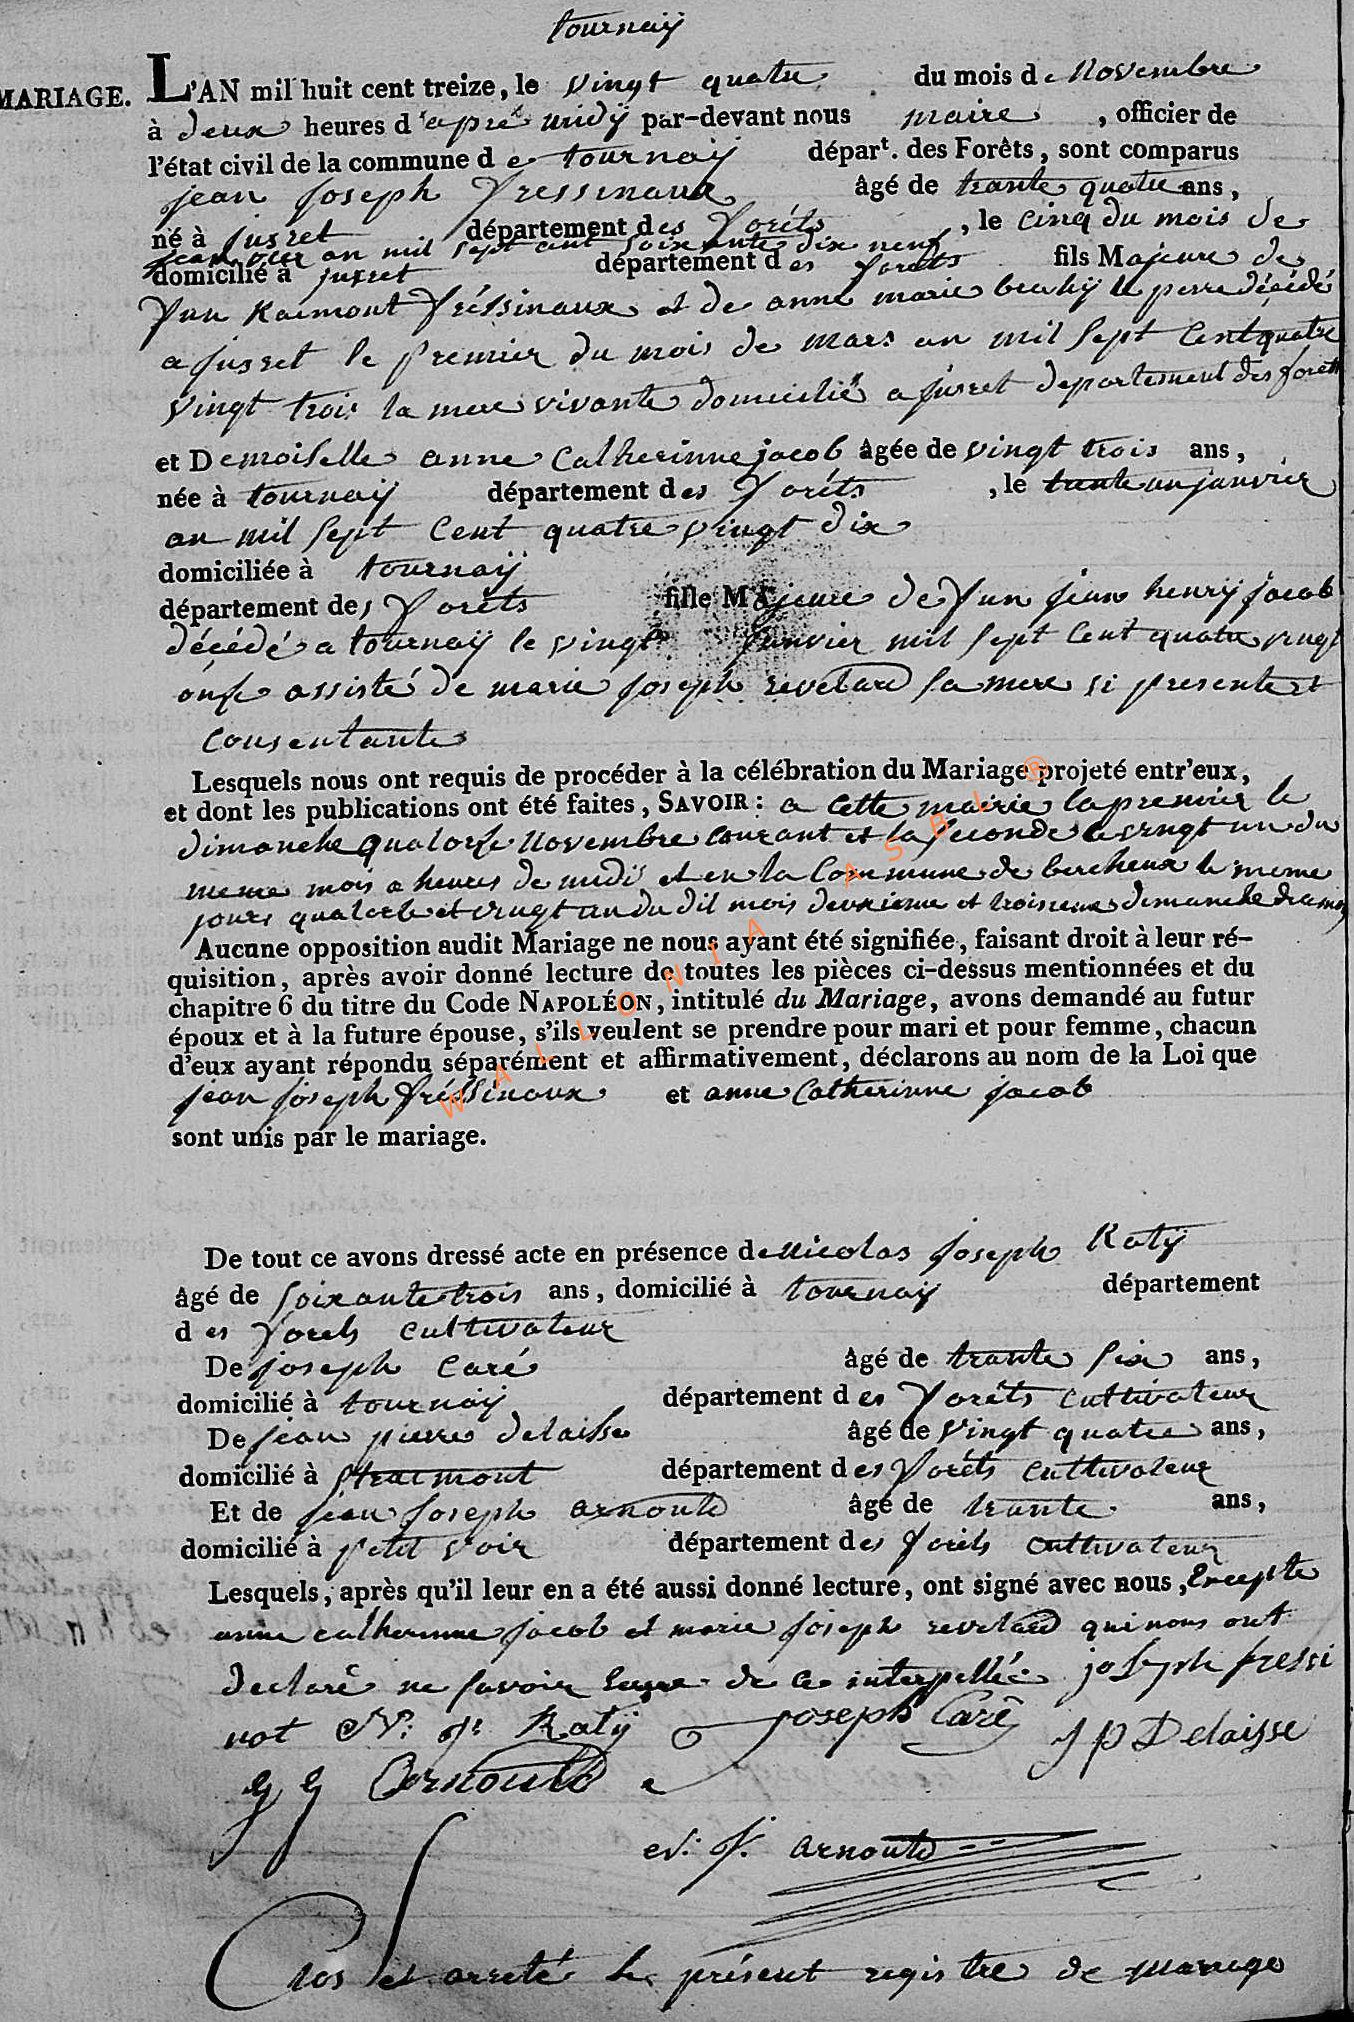 tournaÿ
MARIAGE. L'AN mil huit cent treize, le vingt quatre du mois de Novembre
à deux heures d'apré midÿ par-devant nous maire , officier de
l'état civil de la commune de tournaÿ départ. des Forêts, sont comparus
jean joseph fressinaux âgé de trante quatre ans,
né à jusret département des foréts , le cinq du mois de
janvier an mil sept cent soixante dix neuf
domicilié à jusret département des foréts fils Majeure de
fun Raimont fréssinaux et de anne marie le perre décédé
a jusret le premier du mois de mars an mil sept Cent quatre
vingt trois la mere vivante domicilié a jusret departement des foréts
et Demoiselle anne Catherinne jacob âgée de vingt trois ans,
née à tournaÿ département des foréts , le trante un janvier
an mil sept Cent quatre vingt dix
domiciliée à tournaÿ
département des foréts fille Majeure de fun jean henrÿ jacob
décédé a tournaÿ le vingt janvier mil sept Cent quatre vingt
onse assisté de marie joseph revelard sa mere si presente et
consentante
Lesquels nous ont requis de procéder à la célébration du Mariage projeté entr'eux,
et dont les publications ont été faites, SAVOIR : a cette mairie la premier le
dimanche quatorse Novembre courant et la seconde le vingt un du
meme mois a heures de midi et en la Commune de bercheux le meme
jours quatorse et vingt un du dit mois deuxieme et troisieme dimanche
Aucune opposition audit Mariage ne nous ayant été signifiée, faisant droit à leur ré-
quisition, après avoir donné lecture de toutes les pièces ci-dessus mentionnées et du
chapitre 6 du titre du Code NAPOLÉON, intitulé du Mariage, avons demandé au futur
époux et à la future épouse, s'ils veulent se prendre pour mari et pour femme, chacun
d'eux ayant répondu séparément et affirmativement, déclarons au nom de la Loi que
jean joseph fréssinaux et anne Catherinne jacob
sont unis par le mariage.
De tout ce avons dressé acte en présence de nicolas joseph Ratÿ
âgé de soixante trois ans, domicilié à tournaÿ département
des forets cultivateur
De joseph caré âgé de trante six ans,
domicilié à tournaÿ département des foréts cultivateur
De jean pierre delaisse âgé de vingt quatre ans,
domicilié à straimont département des foréts cultivateur
Et de jean joseph arnould âgé de trante ans,
domicilié à petit voir département des foréts cultivateur
Lesquels, après qu'il leur en a été aussi donné lecture, ont signé avec nous, Excepte
anne catherinne jacob et marie joseph revelard qui nous ont
declaré ne savoir de ce interpellée joseph fressi
not N: j: Ratÿ joseph Caré j p Delaisse
j j Arnould
N. J. arnould
Clos et arreté le présent registre de mariage
WALLONIA ASBL ®